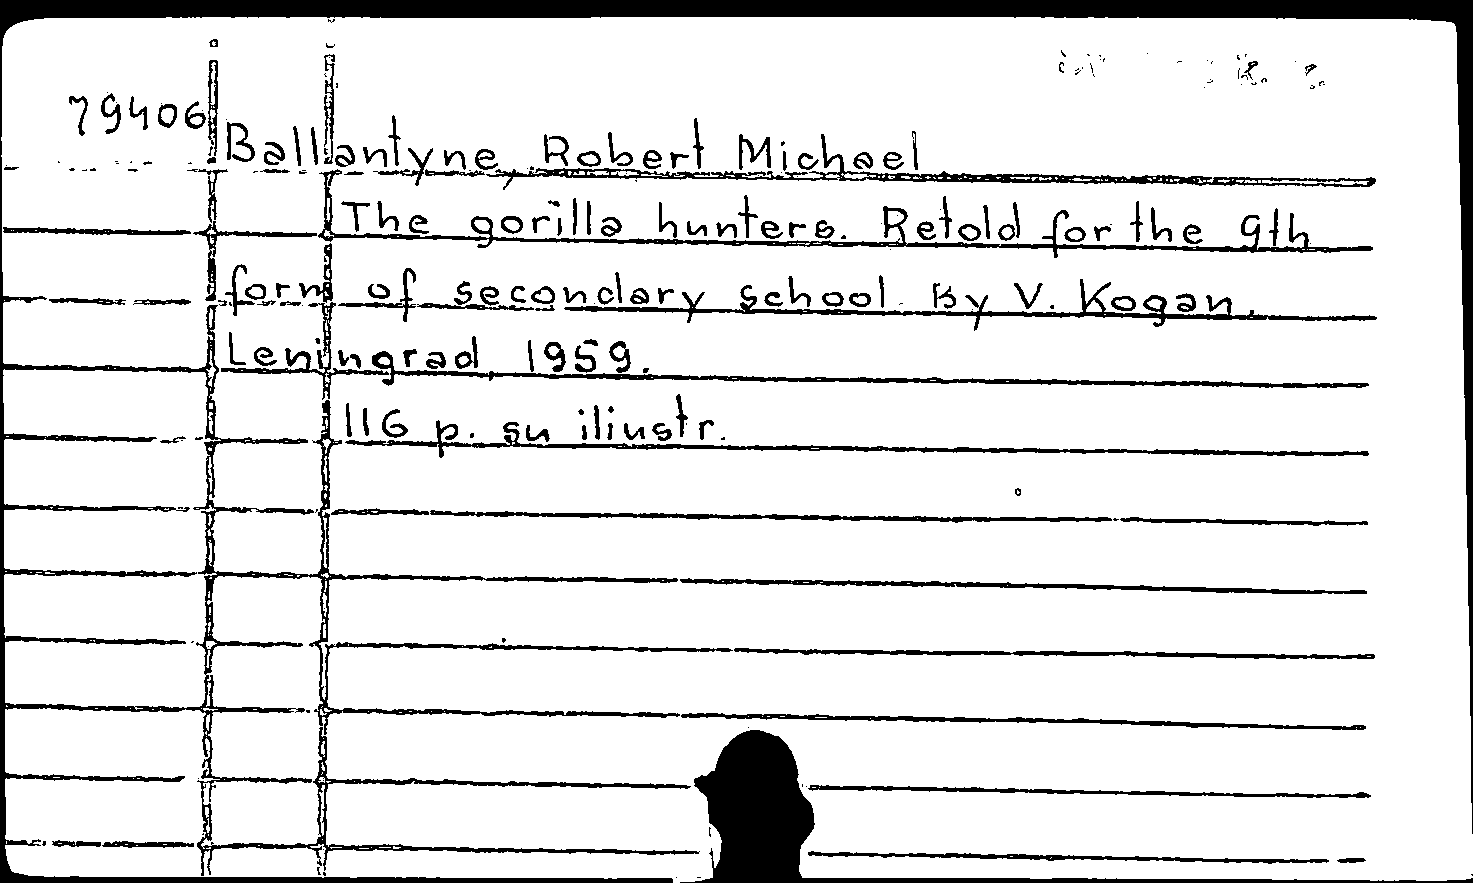 79406
Ballantyne, Robert Michael
The gorilla hunters. Retold for the 9th
form of secondary school. By V. Kogan.
Leningrad, 1959.
116 p. su iliustr.